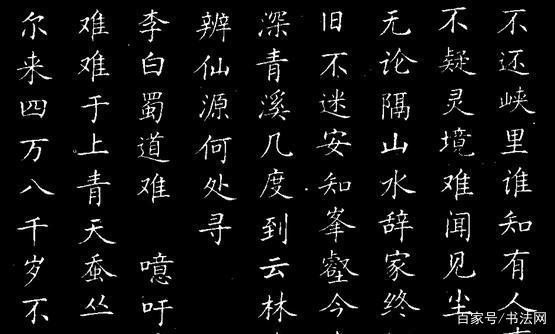 不还峡里谁知有人
不疑灵境难闻见尘
无论隔山水辞家终
旧不迷安知峯壑今
深青溪几度到云林
辨仙源何处寻
李白蜀道难 噫吁
难难于上青天蚕丛
尔来四万八千岁不
百家号/书法网